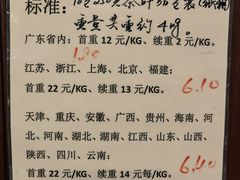 标准:
广东省内: 首重 12 元/KG、续重 2 元/KG.
江苏、浙江、上海、北京、福建:
首重 22 元/KG、续重 13 元/KG.
6.10
天津、重庆、安徽、广西、贵州、海南、河
北、河南、湖北、湖南、江西、山东、山西、
陕西、四川、云南:
首重 22 元/KG、续重 14 元每/KG.
6.40